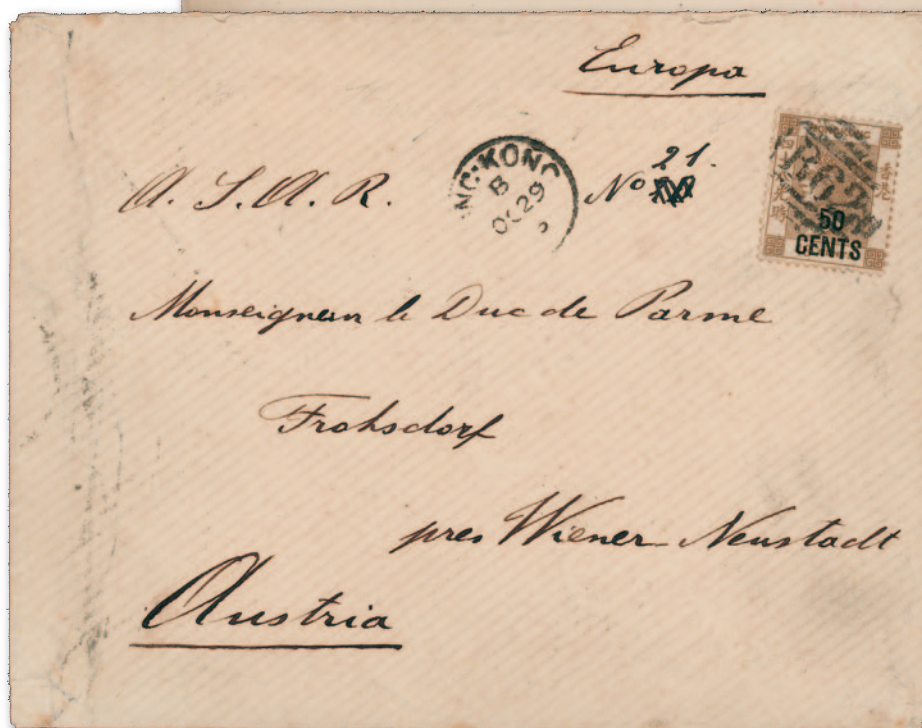 Europa
A. S. A. R. No 21.
NG-KONG
B
OC 29
B62
50
CENTS
Monseigneur le Duc de Parme
Frohsdorf
pres Wiener Neustadt
Austria